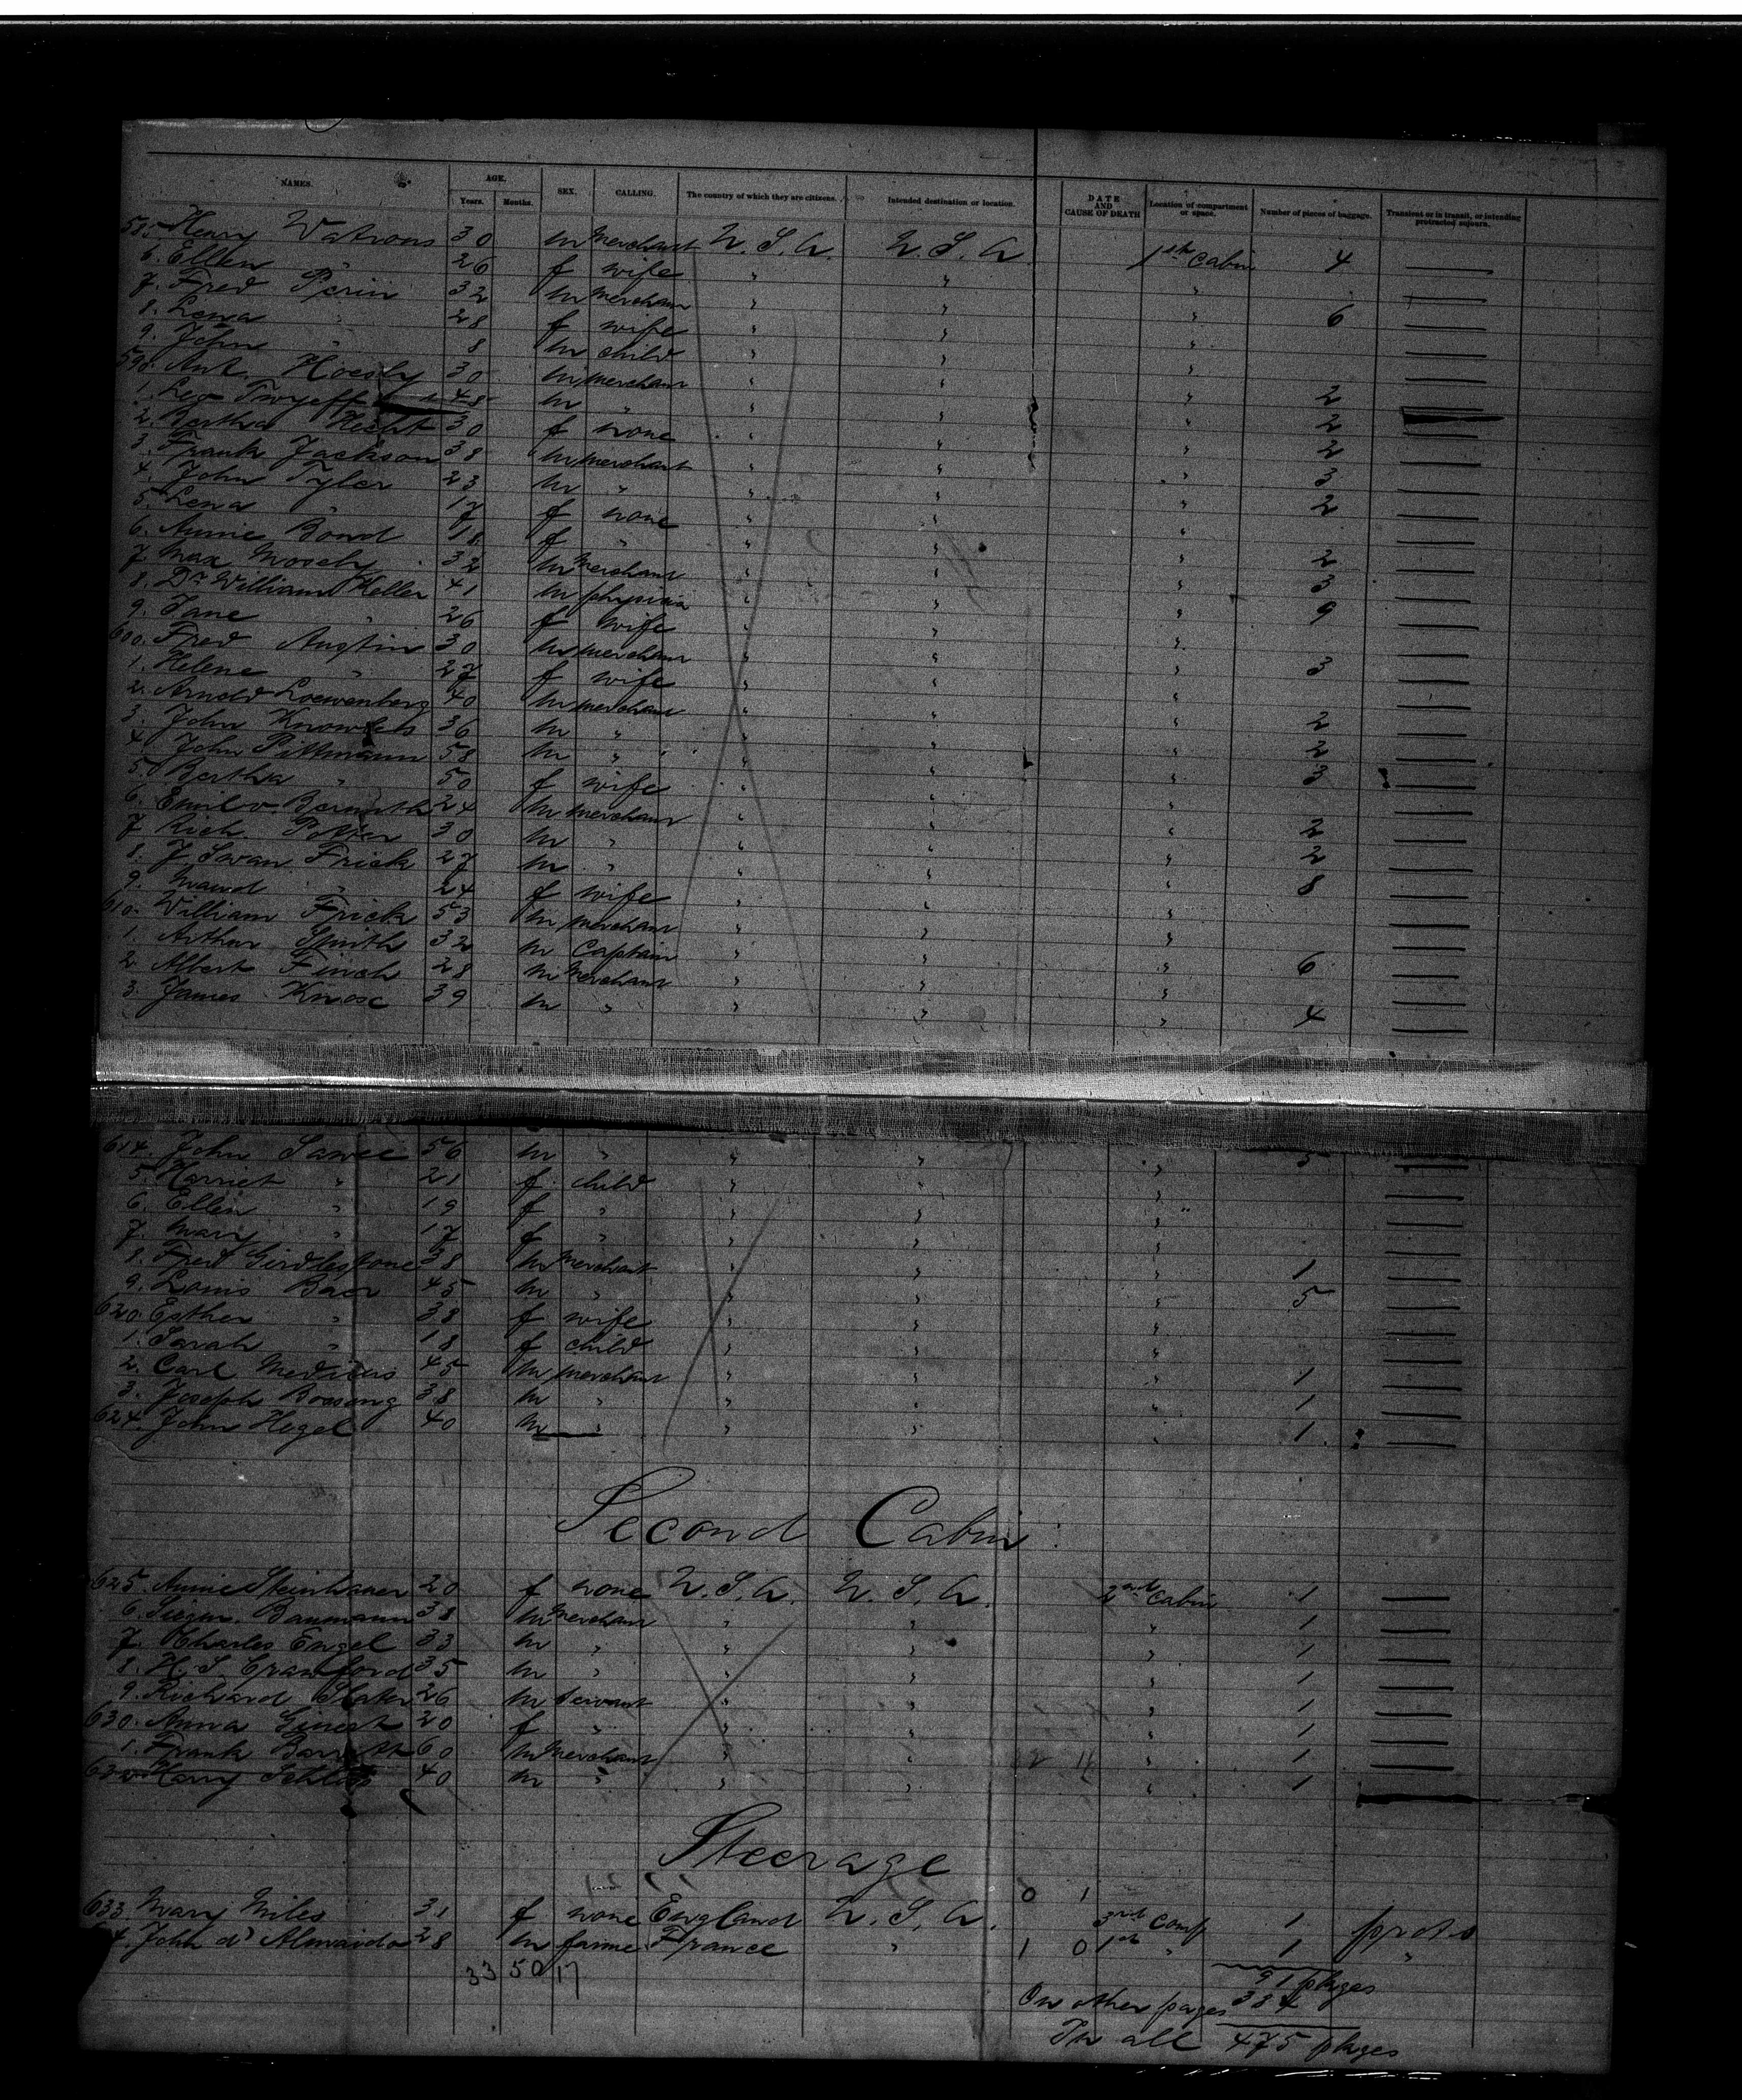 NAMES. AGE. SEX. CALLING. The country of which they are citizens. Intended destination or location. DATE AND CAUSE OF DEATH Location of compartment or space. Number of pieces of baggage. Transient or in transit, or intending protracted sojourn.
Years. Months.
585 Henry Watrous 30 m Merchant U.S.A. U.S.A. 1st Cabin 4 —
6. Ellen " 26 f wife " " " —
7. Fred Perin 32 m Merchant " " " 6 —
8. Lena " 28 f wife " " " —
9. John " 8 m child " " " —
590. Ant. Hoesly 30 m merchant " " " 2 —
1. Leo 48 m " " " " 2 —
2. Bertha Hecht 30 f none " " " 2 —
3. Frank Jackson 38 m merchant " " " 3 —
4. John Tyler 23 m " " " " 2 —
5. Lena " 17 f none " " " —
6. Annie Bond 18 f " " " " 2 —
7. Max Mosely 32 m Merchant " " " 3 —
8. Dr William Heller 41 m physician " " " 9 —
9. Jane " 26 f wife " " " —
600. Fred Austin 30 m merchant " " " 3 —
1. Helene " 27 f wife " " " —
2. Arnold Loewenberg 40 m merchant " " " 2 —
3. John 36 m " " " " 2 —
4. John Pittmann 58 m " " " " 3 —
5. Bertha " 50 f wife " " " —
6. Emil v. 24 m merchant " " " 2 —
7 Rich. Potter 30 m " " " " 2 —
8. J. Swan Frick 27 m " " " " 8 —
9. Maud " 24 f wife " " " —
610. William Frick 53 m merchant " " " —
1. Arthur Smith 32 m Captain " " " 6 —
2 Albert Finch 28 m Merchant " " " —
3. James Knox 39 m " " " " 4 —
614. John 56 m " " " " 5 —
5. Harriet " 21 f child " " " —
6. Ellen " 19 f " " " " —
7. Mary " 17 f " " " " —
8. Fred Girdlestone 38 m Merchant " " " 1 —
9. Louis Baer 45 m " " " " 5 —
620. Esther " 38 f wife " " " —
1. Sarah " 18 f child " " " —
2. Carl Medicus 45 m merchant " " " 1 —
3. Joseph Bossong 38 m " " " " 1 —
624. John Hegel 40 m " " " " 1 —
Second Cabin
625. Annie Steinhauer 20 f none U.S.A. U.S.A. 2nd Cabin 1 —
6. Siegm. Baumann 38 m Merchant " " " 1 —
7. Charles Engel 33 m " " " " 1 —
8. H. S. Crawford 35 m " " " " 1 —
9. Richard Slater 26 m servant " " " 1 —
630. Anna 20 f " " " " 1 —
1. Frank Barrett 60 m Merchant " " " 1 —
632 Harry 40 m " " " " 1
Steerage
0 1
633 Mary Miles 31 f none England U.S.A. 3rd Comp 1
4. John d' 28 m France " 1 0 1st " 1 "
33 50 17
91 pkges
On other pages 384
In all 475 pkges